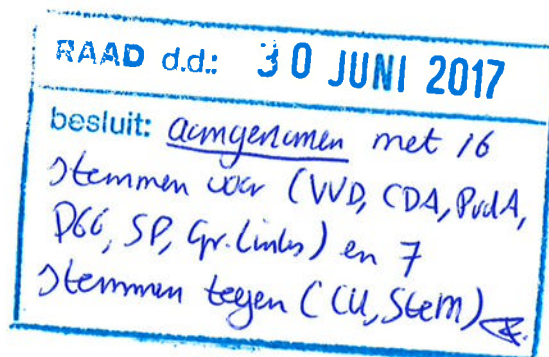 RAAD d.d.: 30 JUNI 2017
besluit: aangenomen met 16
stemmen voor (VVD, CDA, PvdA,
D66, SP, Gr. Links) en 7
stemmen tegen (CU, SteM)